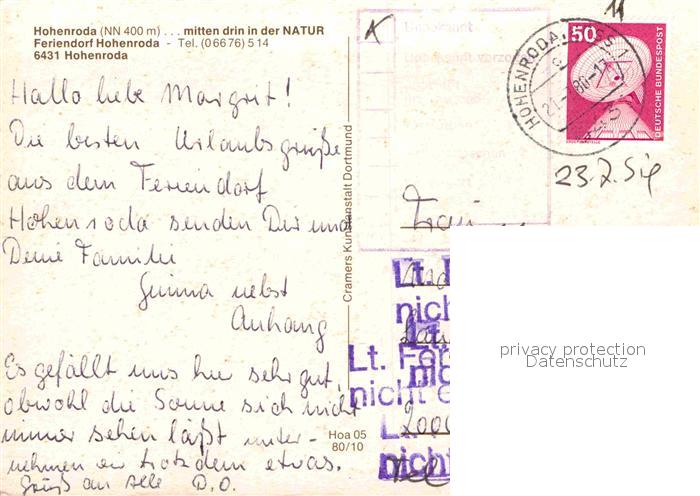 Hohenroda (NN 400 m) . . . mitten drin in der NATUR
Feriendorf Hohenroda - Tel. (06676) 514
6431 Hohenroda
Hallo liebe Margrit!
Die besten Urlaubsgrüße
aus dem Feriendorf
Hohenroda senden Dir und
Deine Familie
nebst
Anhang
Es gefällt uns hier sehr gut,
obwohl die Sonne sich nicht
immer sehen läßt unter-
nehmen wir trotzdem etwas.
Gruß an alle D.O.
Cramers Kunstanstalt Dortmund
Hoa 05
80/10
Unbekannt
HOHENRODA
50
DEUTSCHE BUNDESPOST
23.7.
Frau
Lt.
nicht
Lt.
Lt. Fer
nicht
nicht
2000
Lt.
nicht
Tel
privacy protection
Datenschutz